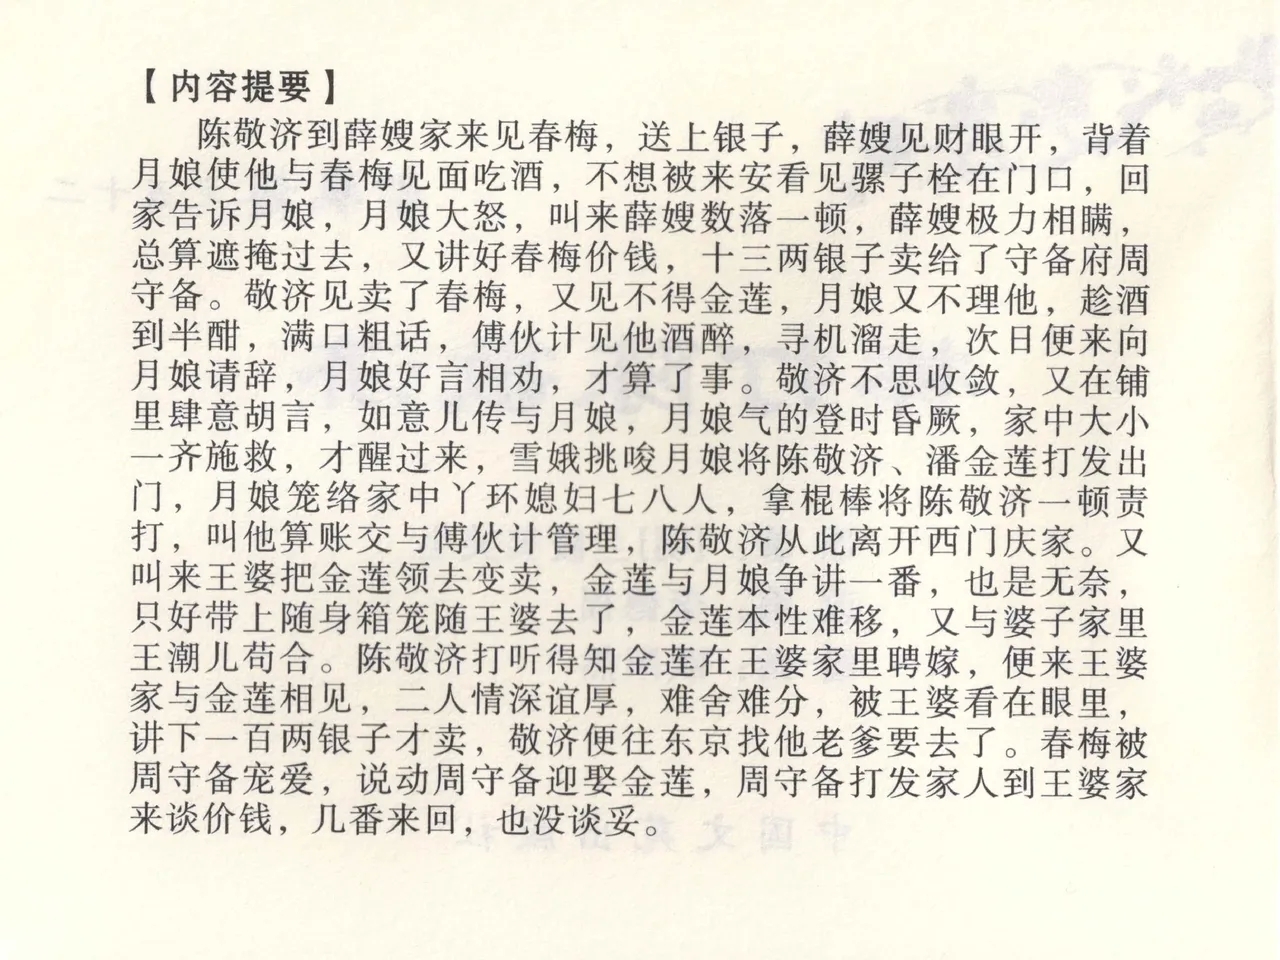 【内容提要】
陈敬济到薛嫂家来见春梅，送上银子，薛嫂见财眼开，背着
月娘使他与春梅见面吃酒，不想被来安看见骡子栓在门口，回
家告诉月娘，月娘大怒，叫来薛嫂数落一顿，薛嫂极力相瞒，
总算遮掩过去，又讲好春梅价钱，十三两银子卖给了守备府周
守备。敬济见卖了春梅，又见不得金莲，月娘又不理他，趁酒
到半酣，满口粗话，傅伙计见他酒醉，寻机溜走，次日便来向
月娘请辞，月娘好言相劝，才算了事。敬济不思收敛，又在铺
里肆意胡言，如意儿传与月娘，月娘气的登时昏厥，家中大小
一齐施救，才醒过来，雪娥挑唆月娘将陈敬济、潘金莲打发出
门，月娘笼络家中丫环媳妇七八人，拿棍棒将陈敬济一顿责
打，叫他算账交与傅伙计管理，陈敬济从此离开西门庆家。又
叫来王婆把金莲领去变卖，金莲与月娘争讲一番，也是无奈，
只好带上随身箱笼随王婆去了，金莲本性难移，又与婆子家里
王潮儿苟合。陈敬济打听得知金莲在王婆家里聘嫁，便来王婆
家与金莲相见，二人情深谊厚，难舍难分，被王婆看在眼里，
讲下一百两银子才卖，敬济便往东京找他老爹要去了。春梅被
周守备宠爱，说动周守备迎娶金莲，周守备打发家人到王婆家
来谈价钱，几番来回，也没谈妥。
中国文苑出版社